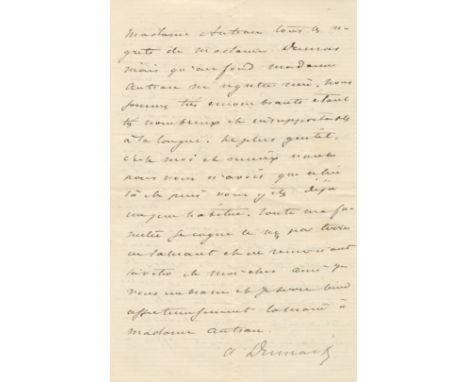 Madame Autran tous les re-
grets de madame Dumas
mais qu'au fond madame
Autran ne regrette rien. Nous
sommes très encombrants étant
très nombreux et insupportables
à la longue. Le plus gentil,
c'est moi et encore
vous vous n'avez que celui
là et puis vous y êtes déjà
un peu habitué. Toute ma fa-
mille se cogne le nez par terre
en saluant et en remerciant
cher ami je
vous embrasse et je serre bien
affectueusement la main à
Madame Autran.
A Dumas f